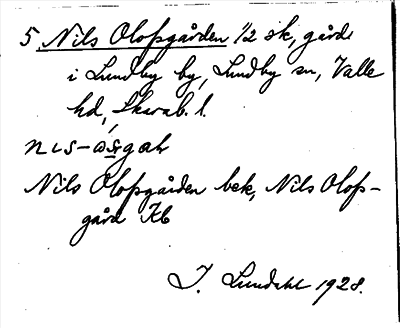 5 Nils Olofsgården 1/2 sk, gård
i Lundby by, Lundby sn, Valle
hd, Skarab. l.
Nils Olofsgården bek, Nils Olofs-
gård Kb
I. Lundahl 1928.